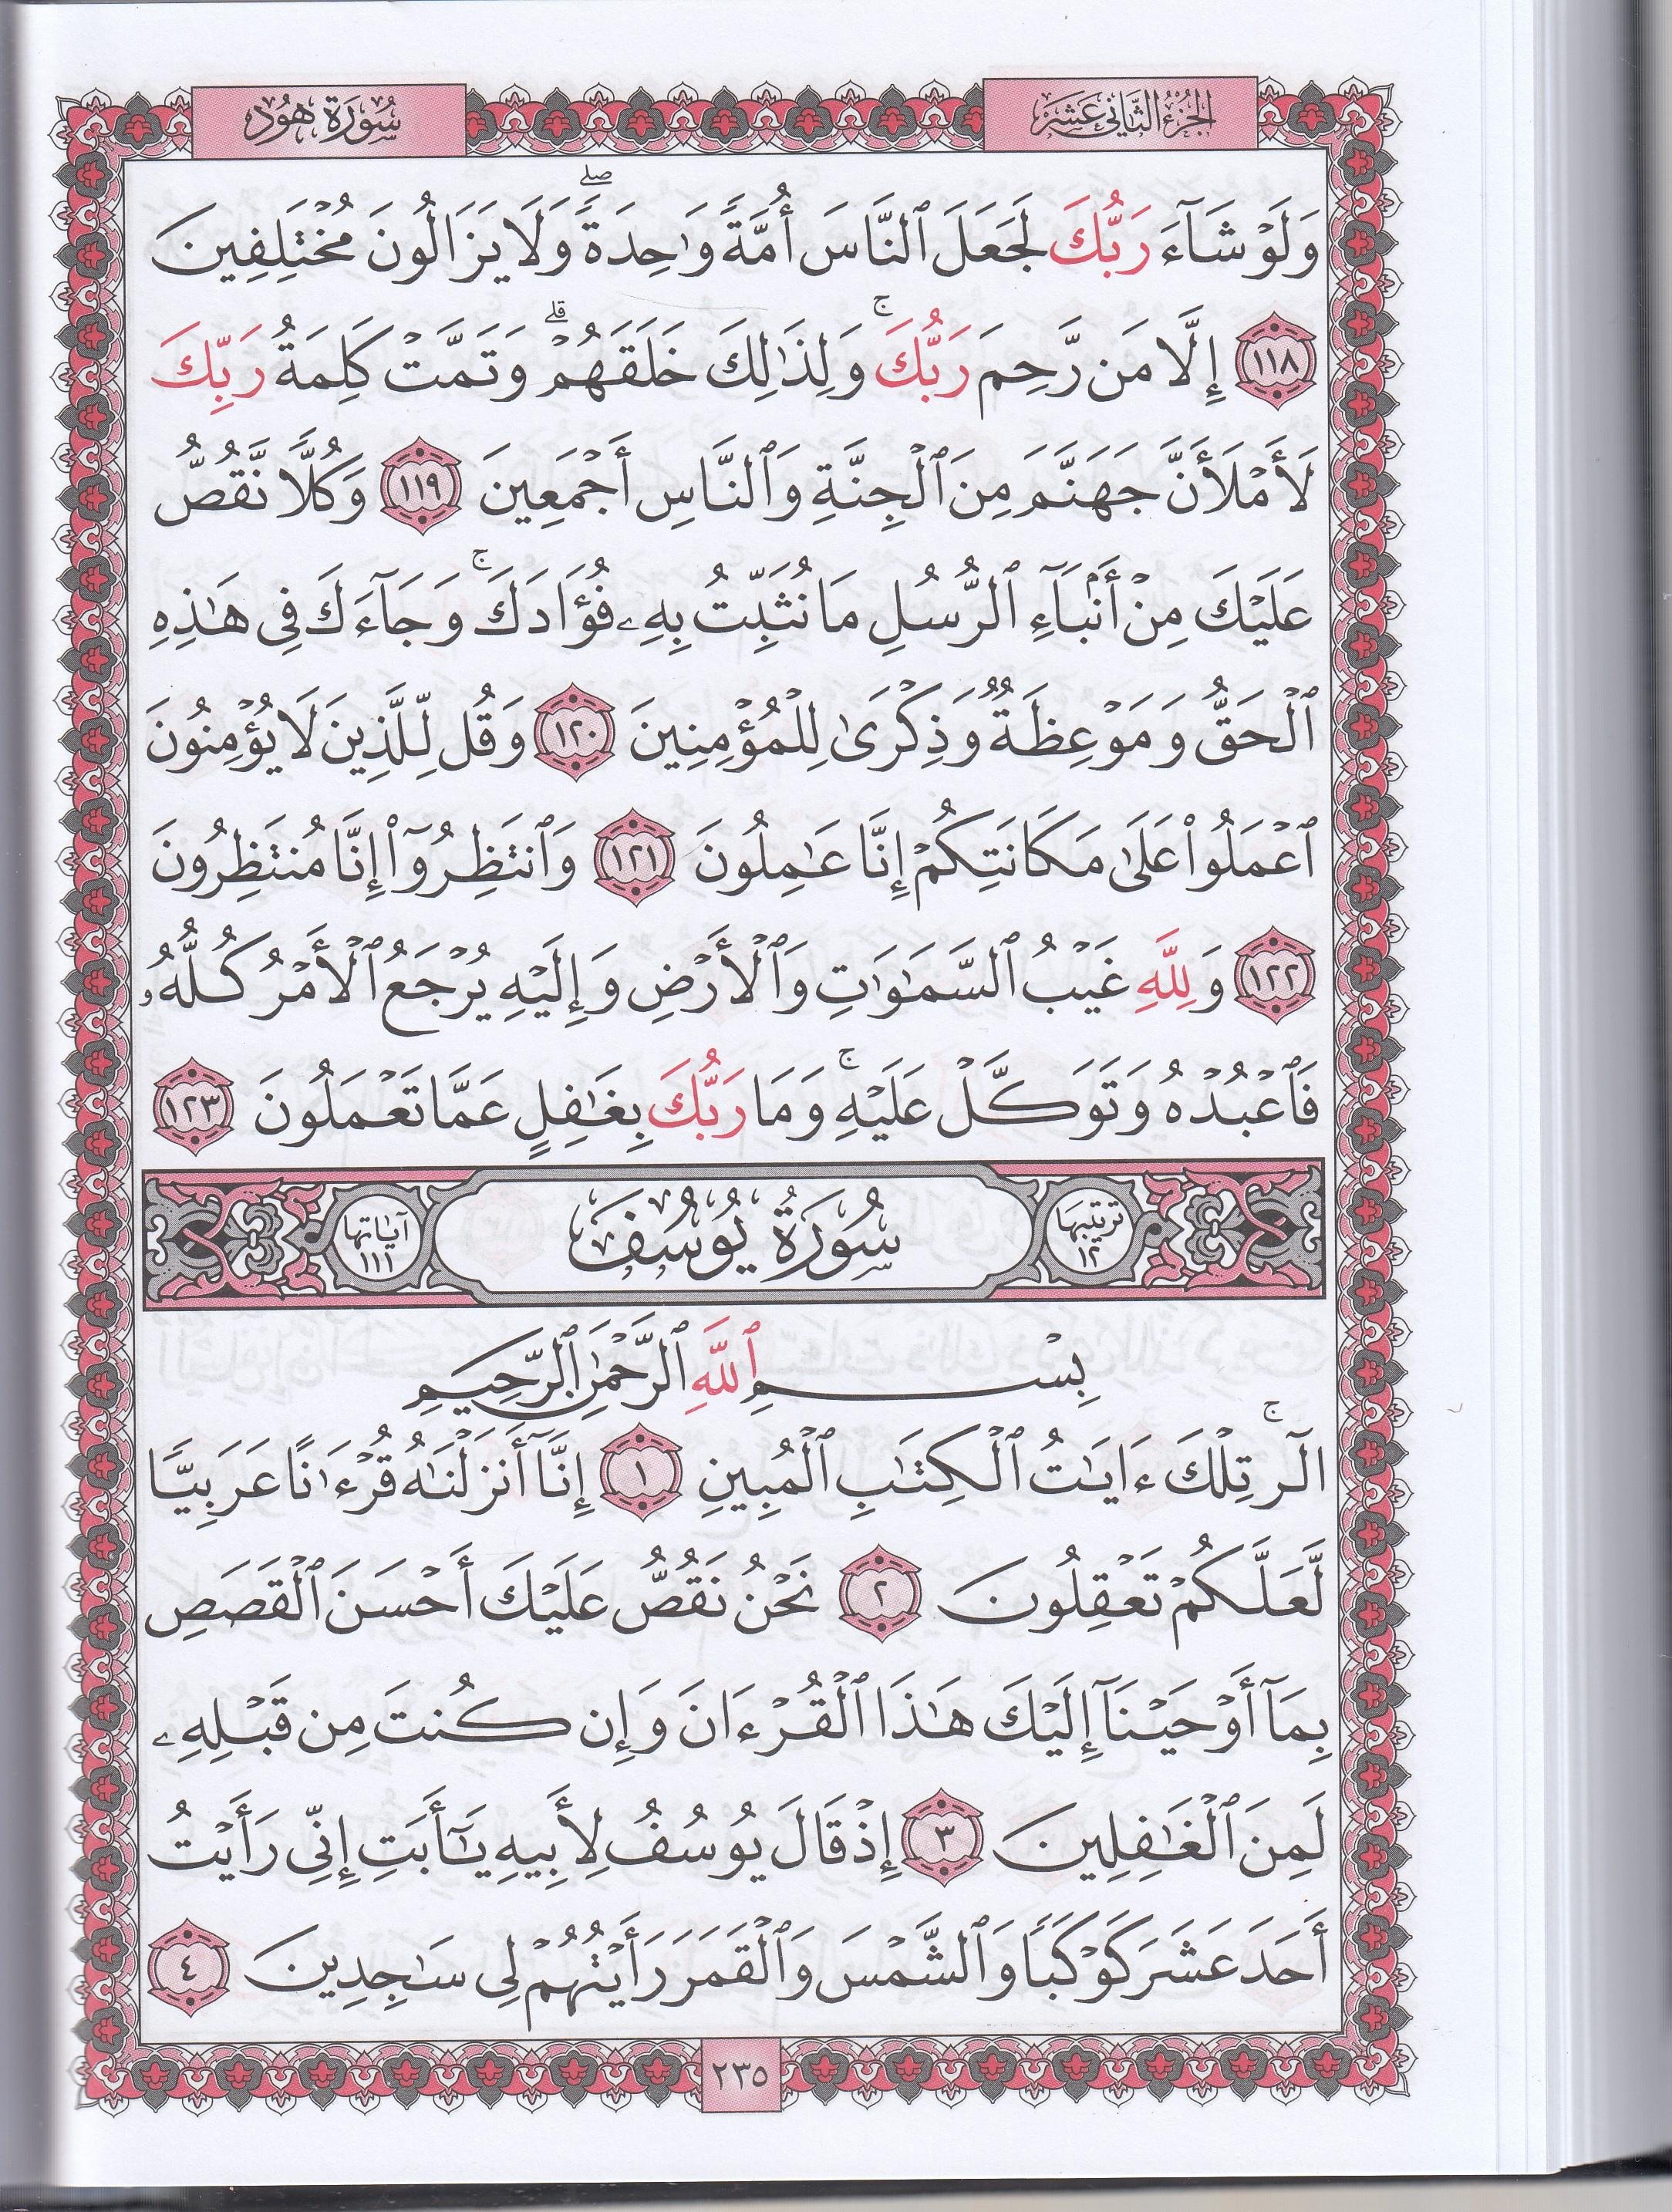 الجزء الثاني عشر
سورة هود
وَلَوْ شَآءَ رَبُّكَ لَجَعَلَ ٱلنَّاسَ أُمَّةً وَٰحِدَةً ۖ وَلَا يَزَالُونَ مُخْتَلِفِينَ
١١٨ إِلَّا مَن رَّحِمَ رَبُّكَ ۚ وَلِذَٰلِكَ خَلَقَهُمْ ۗ وَتَمَّتْ كَلِمَةُ رَبِّكَ
لَأَمْلَأَنَّ جَهَنَّمَ مِنَ ٱلْجِنَّةِ وَٱلنَّاسِ أَجْمَعِينَ ١١٩ وَكُلًّا نَّقُصُّ
عَلَيْكَ مِنْ أَنۢبَآءِ ٱلرُّسُلِ مَا نُثَبِّتُ بِهِۦ فُؤَادَكَ ۚ وَجَآءَكَ فِى هَٰذِهِ
ٱلْحَقُّ وَمَوْعِظَةٌ وَذِكْرَىٰ لِلْمُؤْمِنِينَ ١٢٠ وَقُل لِّلَّذِينَ لَا يُؤْمِنُونَ
ٱعْمَلُوا۟ عَلَىٰ مَكَانَتِكُمْ إِنَّا عَٰمِلُونَ ١٢١ وَٱنتَظِرُوٓا۟ إِنَّا مُنتَظِرُونَ
١٢٢ وَلِلَّهِ غَيْبُ ٱلسَّمَٰوَٰتِ وَٱلْأَرْضِ وَإِلَيْهِ يُرْجَعُ ٱلْأَمْرُ كُلُّهُۥ
فَٱعْبُدْهُ وَتَوَكَّلْ عَلَيْهِ ۚ وَمَا رَبُّكَ بِغَٰفِلٍ عَمَّا تَعْمَلُونَ ١٢٣
ترتيبها ١٢ سُورَةُ يُوسُفَ آياتها ١١١
بِسْمِ ٱللَّهِ ٱلرَّحْمَٰنِ ٱلرَّحِيمِ
الٓر ۚ تِلْكَ ءَايَٰتُ ٱلْكِتَٰبِ ٱلْمُبِينِ ١ إِنَّآ أَنزَلْنَٰهُ قُرْءَٰنًا عَرَبِيًّا
لَّعَلَّكُمْ تَعْقِلُونَ ٢ نَحْنُ نَقُصُّ عَلَيْكَ أَحْسَنَ ٱلْقَصَصِ
بِمَآ أَوْحَيْنَآ إِلَيْكَ هَٰذَا ٱلْقُرْءَانَ وَإِن كُنتَ مِن قَبْلِهِۦ
لَمِنَ ٱلْغَٰفِلِينَ ٣ إِذْ قَالَ يُوسُفُ لِأَبِيهِ يَٰٓأَبَتِ إِنِّى رَأَيْتُ
أَحَدَ عَشَرَ كَوْكَبًا وَٱلشَّمْسَ وَٱلْقَمَرَ رَأَيْتُهُمْ لِى سَٰجِدِينَ ٤
٢٣٥